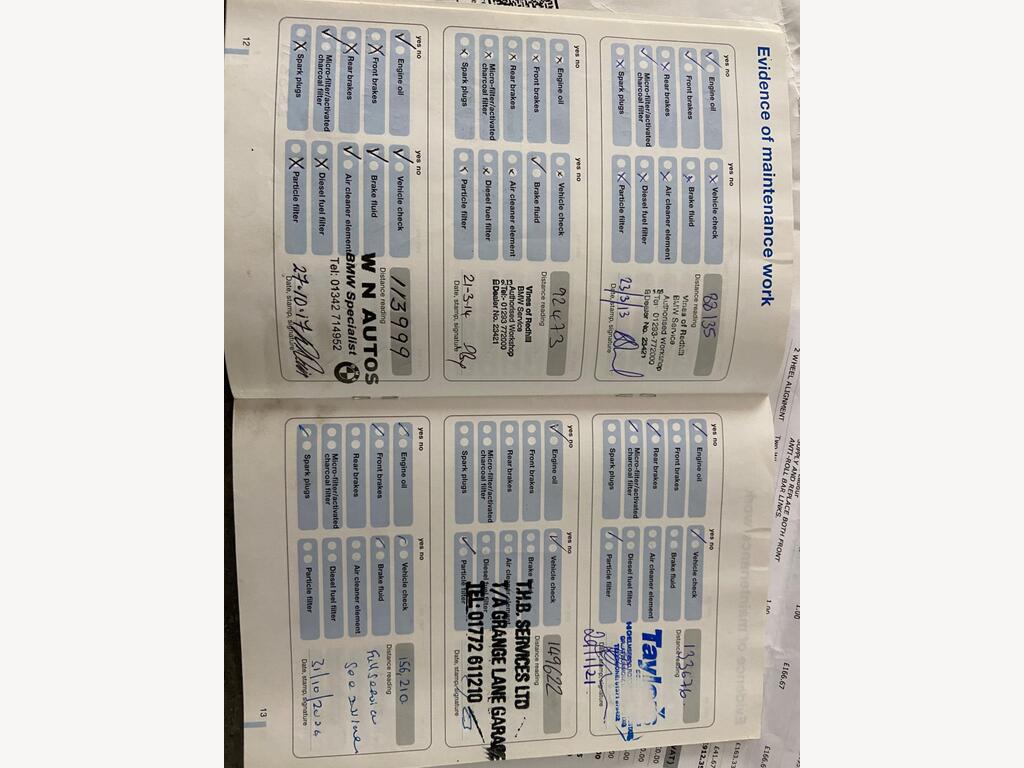 Evidence of maintenance work
yes no
yes no
Engine oil
Vehicle check
Front brakes
Brake fluid
Rear brakes
Air cleaner element
Micro-filter/activated
charcoal filter
Diesel fuel filter
Spark plugs
Particle filter
88135
Distance reading
Vines of Redhill
BMW Service
Authorised Workshop
Tel 01293-772000
Dealer No. 23421
23/3/13
Date, stamp, signature
yes no
yes no
Engine oil
Vehicle check
Front brakes
Brake fluid
Rear brakes
Air cleaner element
Micro-filter/activated
charcoal filter
Diesel fuel filter
Spark plugs
Particle filter
92473
Distance reading
Vines of Redhill
BMW Service
Authorised Workshop
Tel:- 01293 772000
Dealer No. 23421
21-3-14
Date, stamp, signature
yes no
yes no
Engine oil
Vehicle check
Front brakes
Brake fluid
Rear brakes
Air cleaner element
Micro-filter/activated
charcoal filter
Diesel fuel filter
Spark plugs
Particle filter
113999
Distance reading
W N AUTOS
BMW Specialist
Tel: 01342 714952
27.10.17
Date, stamp, signature
12
yes no
yes no
Engine oil
Vehicle check
Front brakes
Brake fluid
Rear brakes
Air cleaner element
Micro-filter/activated
charcoal filter
Diesel fuel filter
Spark plugs
Particle filter
133676
Distance reading
yes no
yes no
Engine oil
Vehicle check
Front brakes
Brake
Rear brakes
Micro-filter/activated
charcoal filter
Diesel fuel filter
Spark plugs
Particle
149622
Distance reading
T.H.B. SERVICES LTD
T/A GRANGE LANE GARAGE
TEL: 01772 61210
Date, stamp, signature
yes no
yes no
Engine oil
Vehicle check
Front brakes
Brake fluid
Rear brakes
Air cleaner element
Micro-filter/activated
charcoal filter
Diesel fuel filter
Spark plugs
Particle filter
156,210
Distance reading
Full service
Date, stamp, signature
13
2 WHEEL ALIGNMENT
ANTI-ROLL BAR LINKS.
1.00
£166.67